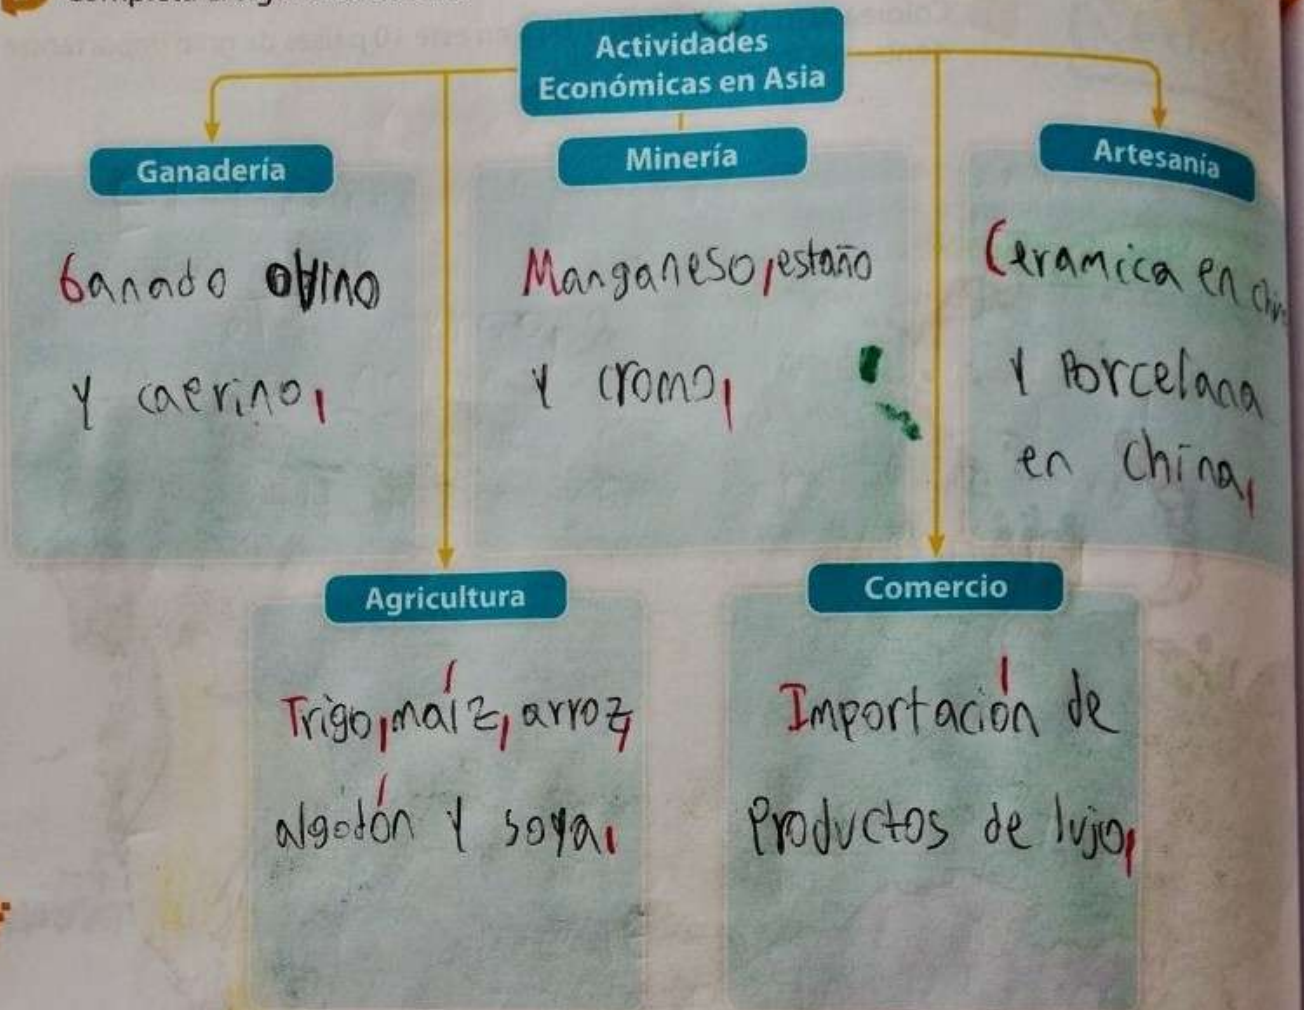 Actividades
Económicas en Asia
Ganadería
Ganado ovino
y caerino,
Minería
Manganeso, estaño
y cromo,
Artesanía
Ceramica en
y Porcelana
en China,
Agricultura
Trigo, maíz, arroz,
algodón y soya,
Comercio
Importación de
Productos de lujo,